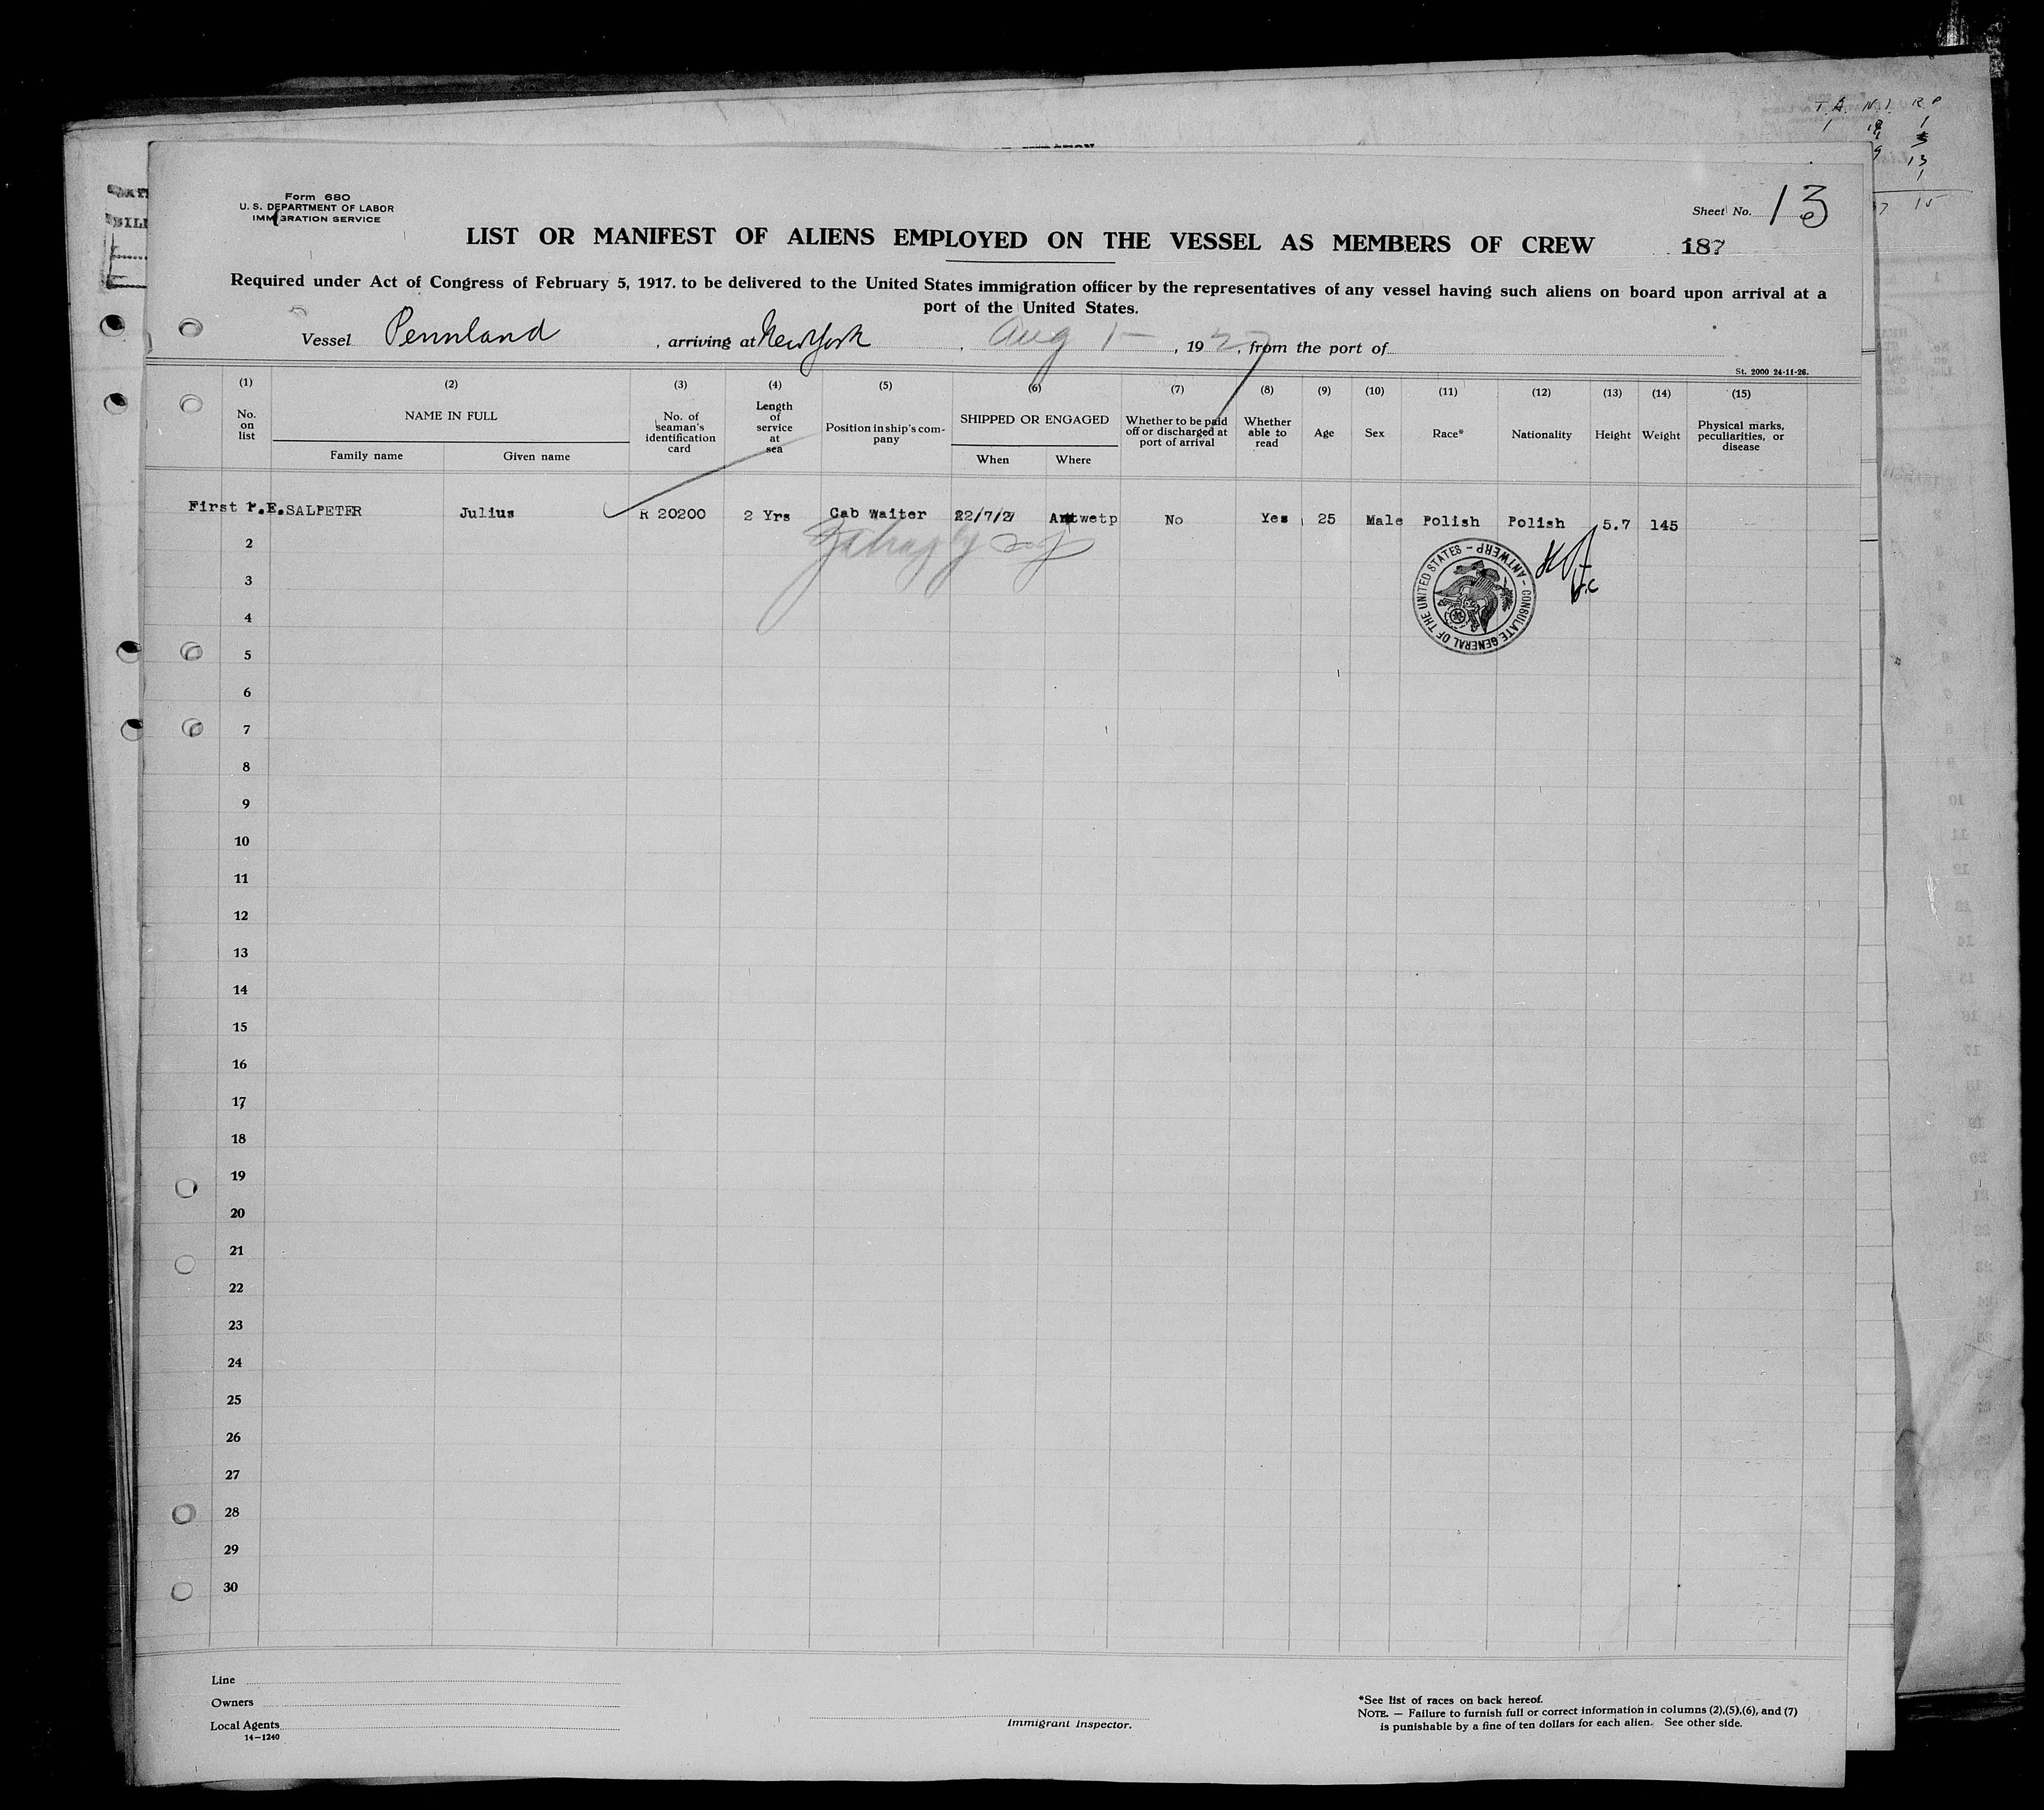 T.A. N.I. R P
Form 680
U. S. DEPARTMENT OF LABOR
IMMIGRATION SERVICE
Sheet No. 13
LIST OR MANIFEST OF ALIENS EMPLOYED ON THE VESSEL AS MEMBERS OF CREW 187
Required under Act of Congress of February 5, 1917. to be delivered to the United States immigration officer by the representatives of any vessel having such aliens on board upon arrival at a
port of the United States.
Vessel Pennland , arriving at New York , Aug 1 - , 1927, from the port of
St. 2000 24-11-26.
(1) (2) (3) (4) (5) (6) (7) (8) (9) (10) (11) (12) (13) (14) (15)
No. on list
NAME IN FULL
Family name
Given name
No. of seaman's identification card
Length of service at sea
Position in ship's company
SHIPPED OR ENGAGED
When
Where
Whether to be paid off or discharged at port of arrival
Whether able to read
Age
Sex
Race*
Nationality
Height
Weight
Physical marks, peculiarities, or disease
First 1.E.SALPETER Julius R 20200 2 Yrs Cab Waiter 22/7/27 Antwetp No Yes 25 Male Polish Polish 5.7 145
2
3
CONSULATE GENERAL OF THE UNITED STATES - ANTWERP -
4
5
6
7
8
9
10
11
12
13
14
15
16
17
18
19
20
21
22
23
24
25
26
27
28
29
30
Line
Owners
Local Agents
14—1240
Immigrant Inspector.
*See list of races on back hereof.
NOTE. — Failure to furnish full or correct information in columns (2),(5),(6), and (7)
is punishable by a fine of ten dollars for each alien. See other side.